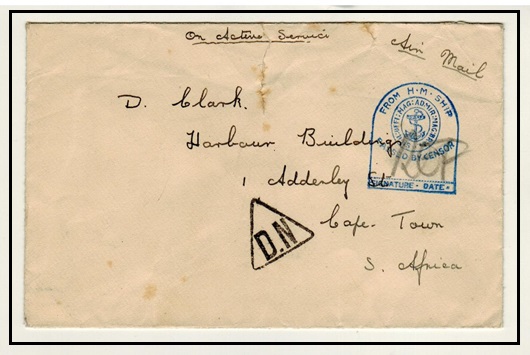 On Active Service
Air Mail
D. Clark.
Harbour Buildings
1 Adderley St
Cape Town
S. Africa
FROM H·M·SHIP
PASSED BY CENSOR
SIGNATURE · DATE
D.N